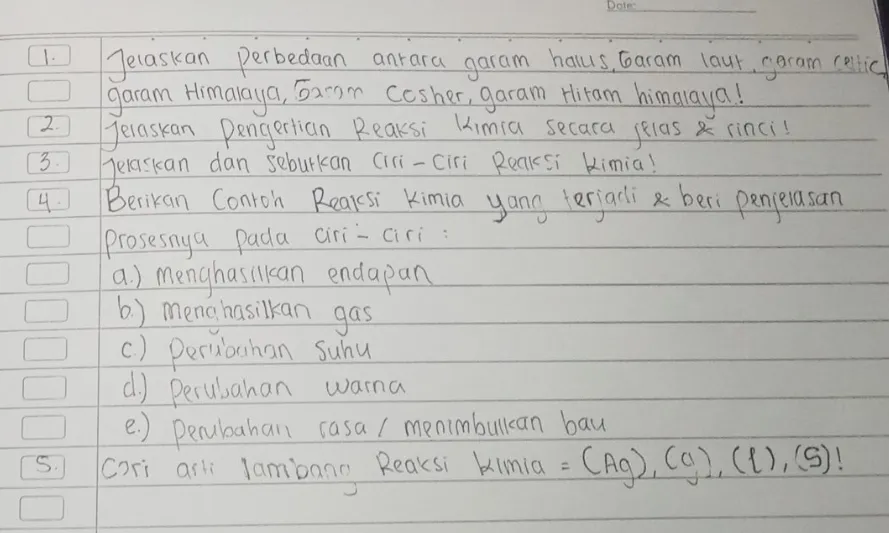 Date:
1. Jelaskan perbedaan antara garam halus, Garam laut, garam celtic
garam Himalaya, Garam Cosher, garam Hitam himalaya!
2. Jelaskan pengertian Reaksi kimia secara jelas & rinci!
3. Jelaskan dan sebutkan Ciri - Ciri Reaksi kimia!
4. Berikan Contoh Reaksi kimia yang terjadi & beri penjelasan
prosesnya pada ciri - ciri :
a.) menghasilkan endapan
b.) menghasilkan gas
c.) perubahan suhu
d.) perubahan warna
e.) perubahan rasa / menimbulkan bau
5. Cari arti lambang Reaksi kimia = (Ag), (g), (l), (S)!